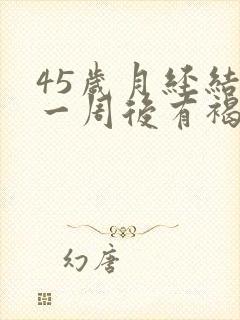 45歲月經結
一周後有褐
幻唐